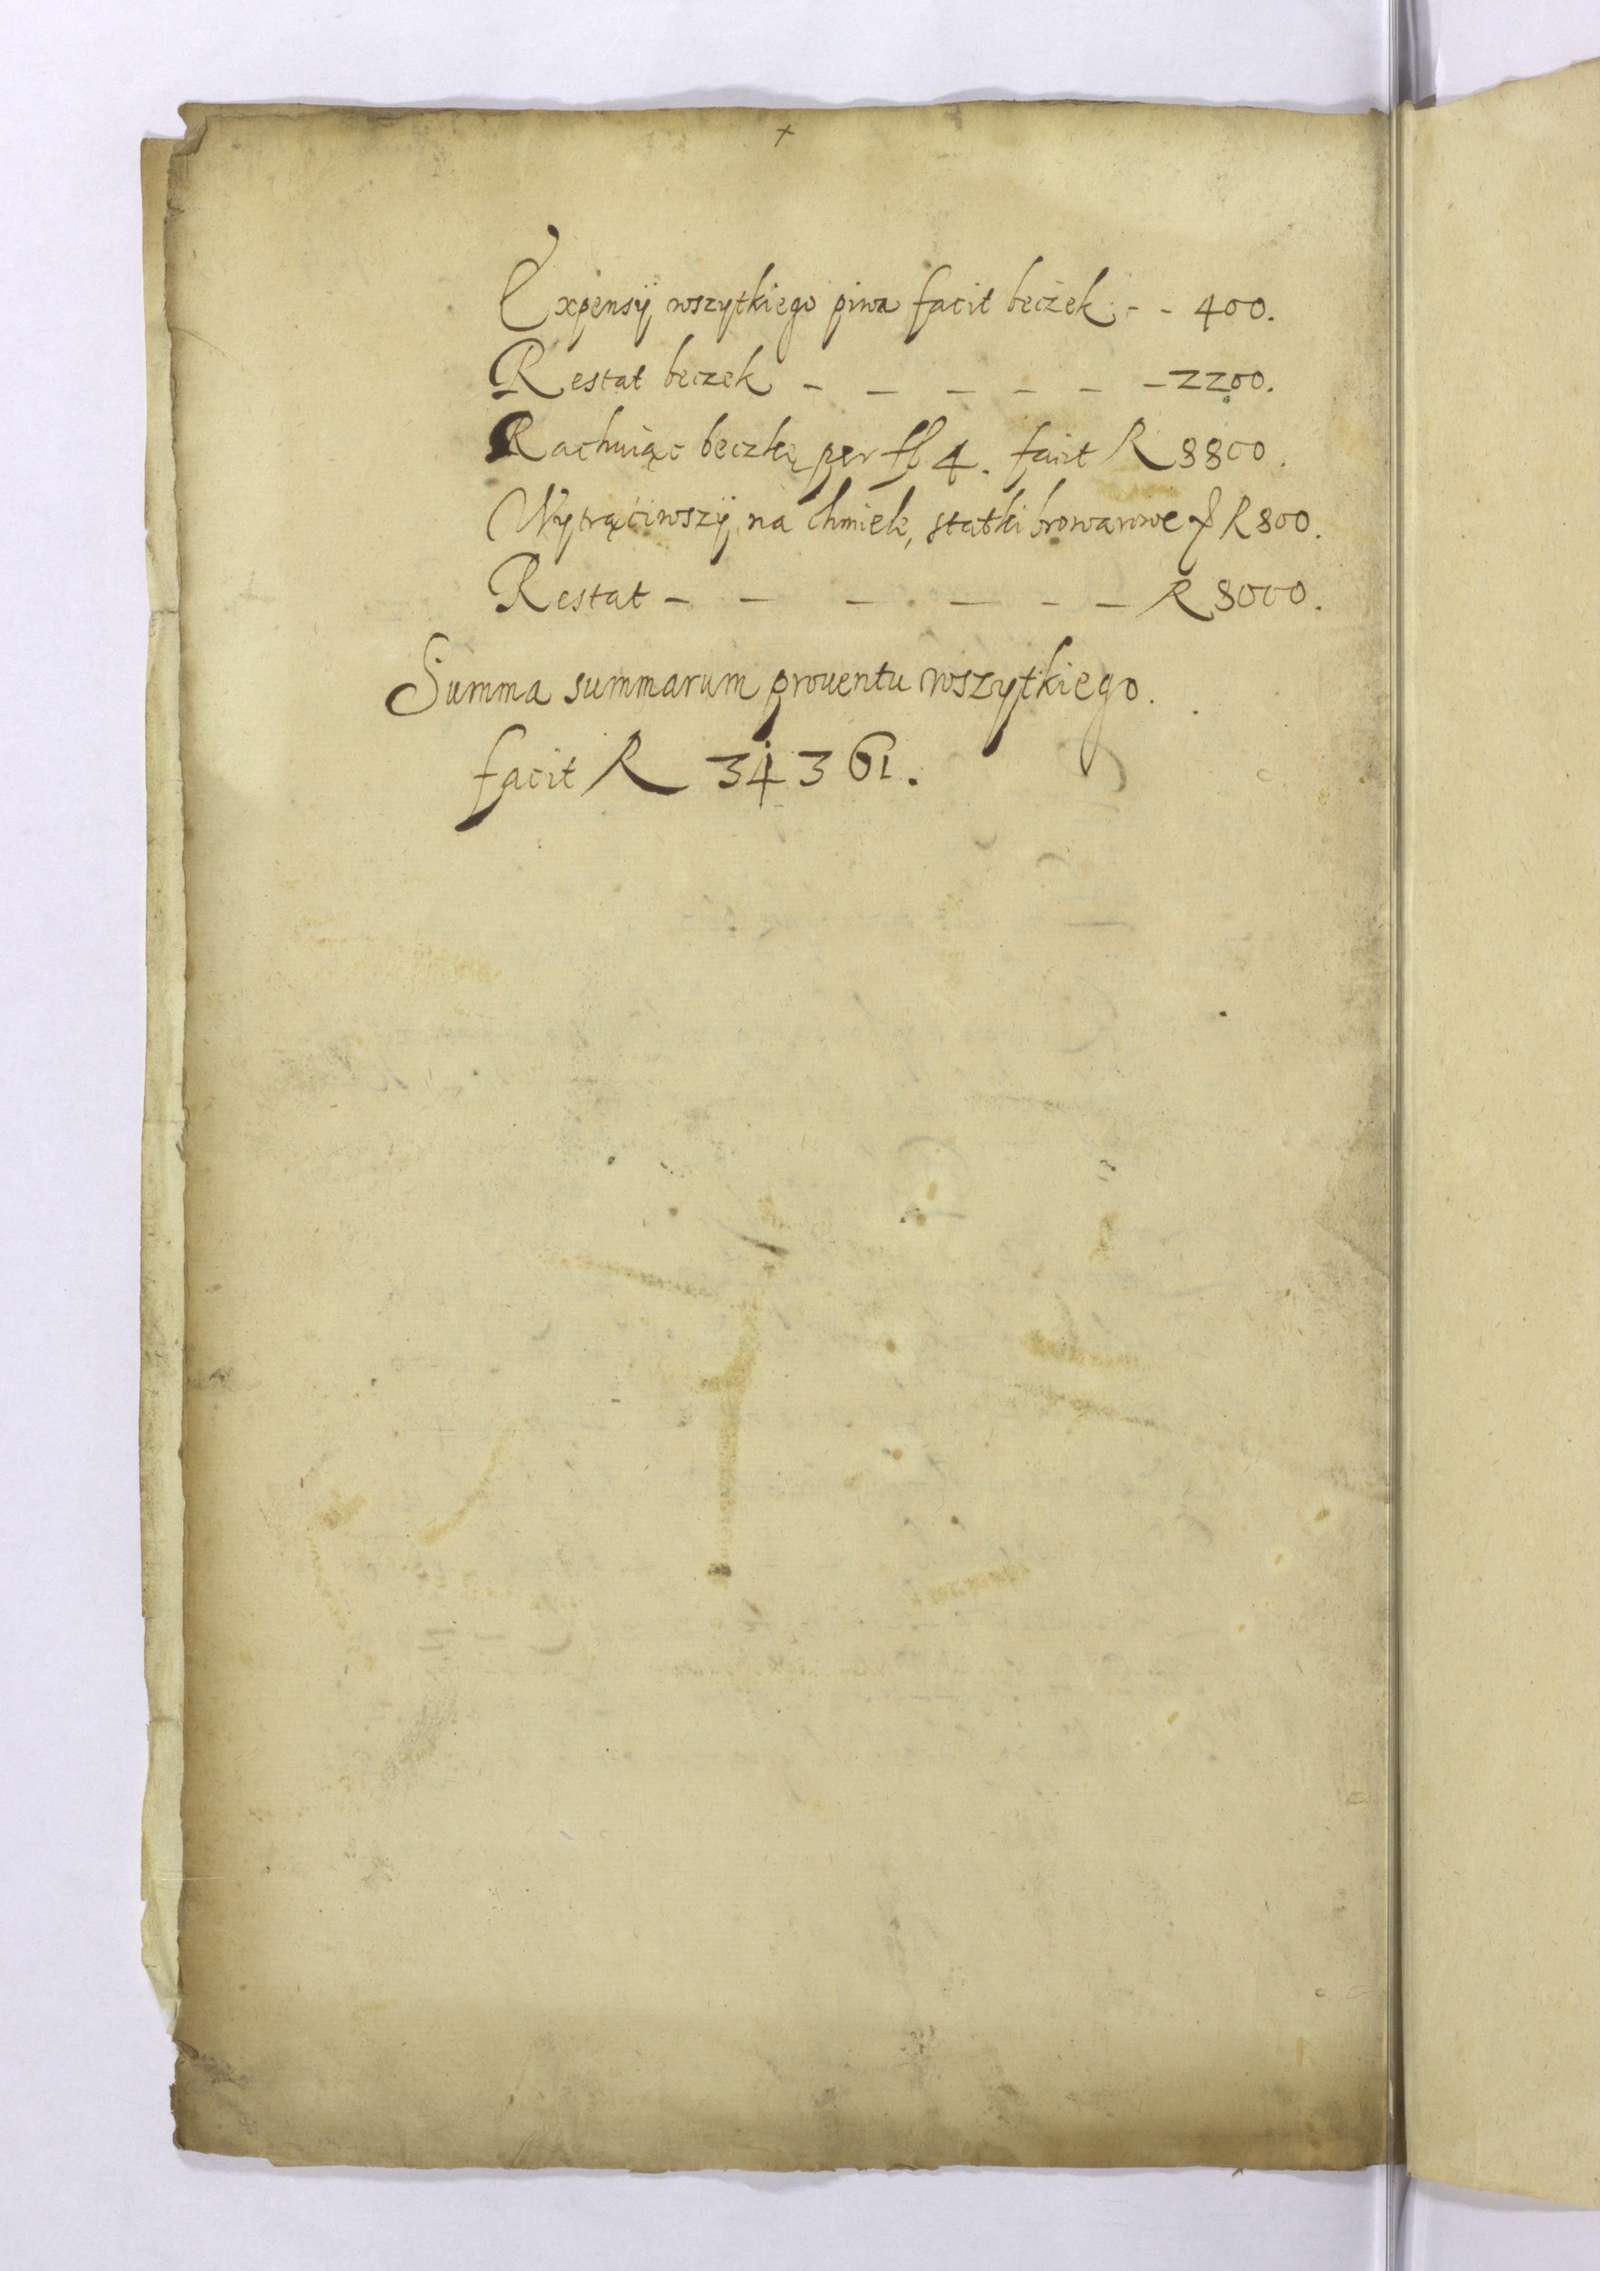 +
Expensÿ wszytkiego piwa facit beczek - - 400.
Restat beczek - - - - - - 2200.
Rachuiąc beczkę per fl 4. facit R 8800.
Wytrąciwszÿ na chmiele, statki browarowe R 800.
Restat - - - - - - R 8000.
Summa summarum prouentu wszytkiego.
facit R 34361.